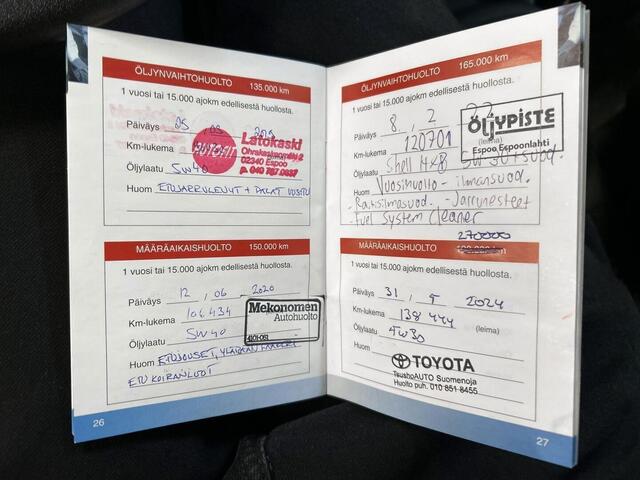 ÖLJYNVAIHTOHUOLTO 135.000 km
1 vuosi tai 15.000 ajokm edellisestä huollosta.
Päiväys 05
Km-lukema
AUTOFIT
Latokaski
Ohrakaskenmäki 2
02340 Espoo
Öljylaatu 5W40
Huom ETUJARRULEVYT + PALAT UUSITTU
MÄÄRÄAIKAISHUOLTO 150.000 km
1 vuosi tai 15.000 ajokm edellisestä huollosta.
Päiväys 12 . 06 2020
Km-lukema 106.434
Öljylaatu 5W40
Mekonomen
Autohuolto
Huom ETUJOUSET,
ETU KOIRANLUUT
26
ÖLJYNVAIHTOHUOLTO 165.000 km
1 vuosi tai 15.000 ajokm edellisestä huollosta.
Päiväys 8 , 2 22
Km-lukema 120701 (leima)
ÖLJYPISTE
Espoo Espoonlahti
Öljylaatu Shell HX8 5W30+suod.
Huom Vuosihuolto - ilmansuod.
- Raitisilmasuod. - Jarrunesteet
- Fuel System Cleaner
270000
MÄÄRÄAIKAISHUOLTO
1 vuosi tai 15.000 ajokm edellisestä huollosta.
Päiväys 31 , 2024
Km-lukema 138 444 (leima)
Öljylaatu
Huom
TOYOTA
TsushoAUTO Suomenoja
Huolto puh. 010 851 8455
27